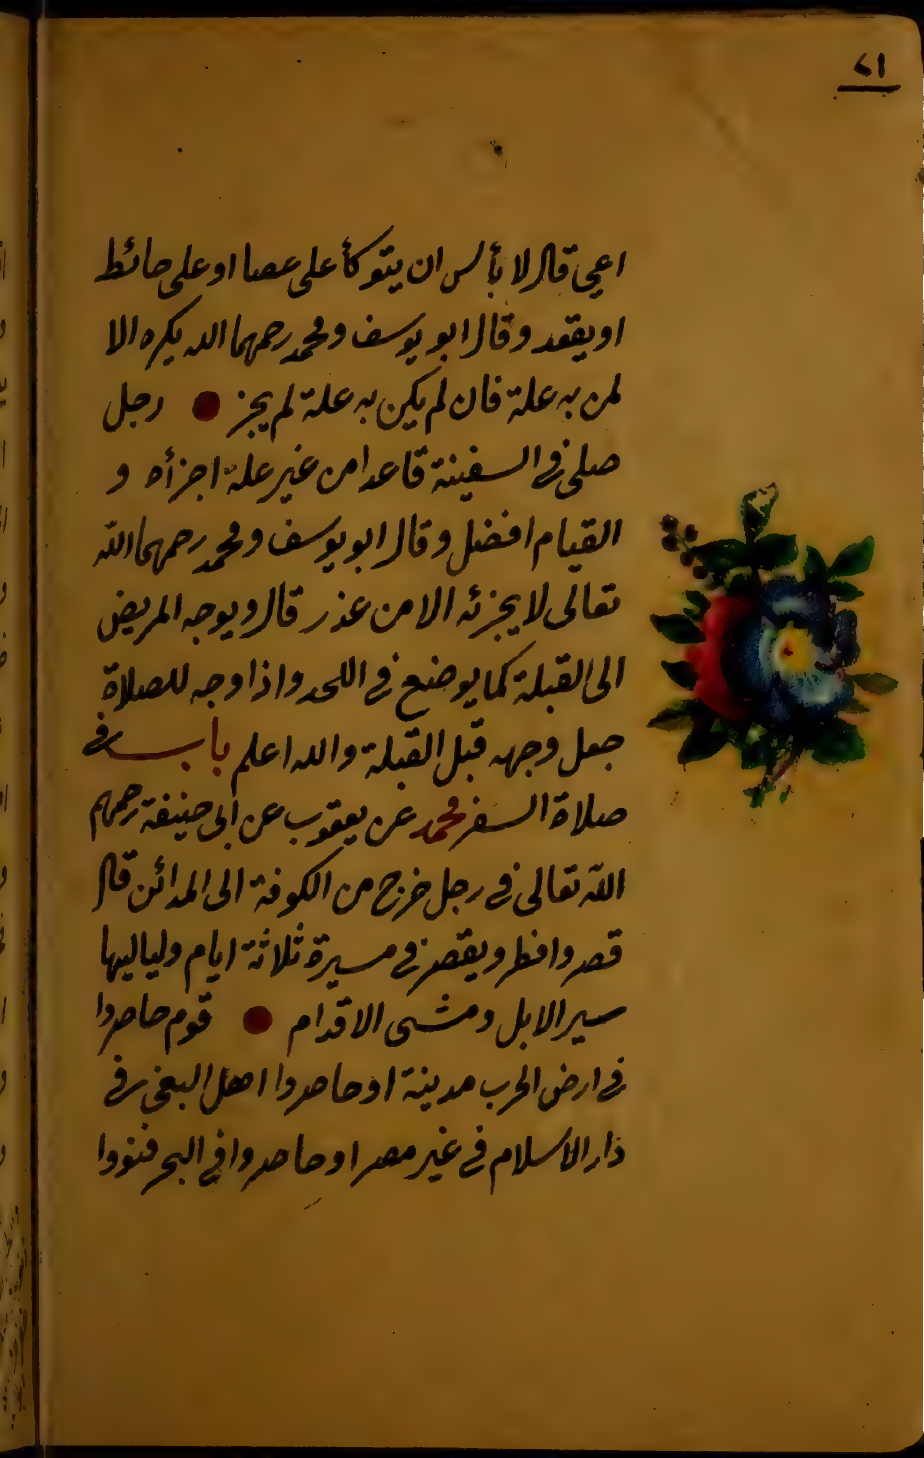 ٤١
اعيى قال لا بأس ان يتوكأ على عصا او على حائط
او يقعد وقال ابو يوسف ومحمد رحمهما الله يكره الا
لمن به علة فان لم يكن به علة لم يجز رجل
صلى في السفينة قاعدا من غير علة اجزأه و
القيام افضل وقال ابو يوسف ومحمد رحمهما الله
تعالى لا يجزئه الا من عذر قال ويوجه المريض
الى القبلة كما يوضع في اللحد واذا وجه للصلاة
جعل وجهه قبل القبلة والله اعلم باب في
صلاة السفر محمد عن يعقوب عن ابى حنيفة رحمهم
الله تعالى في رجل خرج من الكوفة الى المدائن قال
قصر وافطر ويقصر في مسيرة ثلاثة ايام ولياليها
سير الابل ومشى الاقدام قوم حاصروا
في ارض الحرب مدينة او حاصروا اهل البغى في
دار الاسلام في غير مصر او حاصروا في البحر فنووا